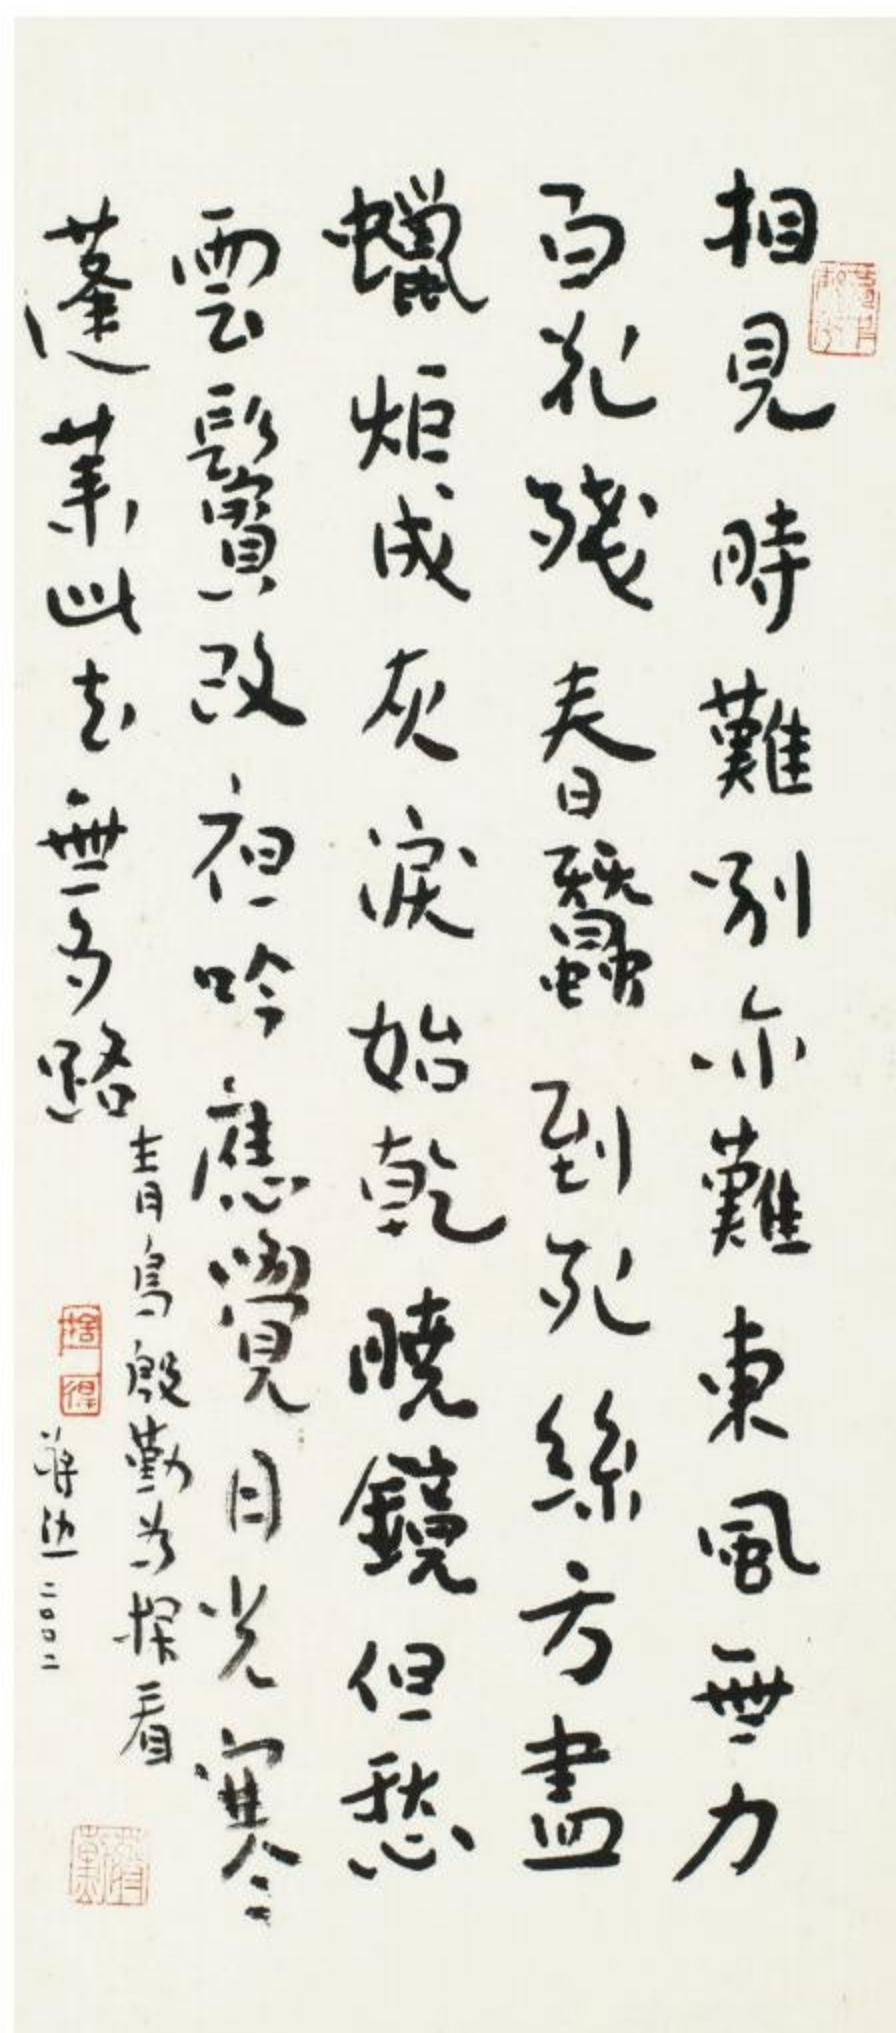 相見時難別亦難東風無力
百花殘春蠶到死絲方盡
蠟炬成灰淚始乾曉鏡但愁
雲鬢改夜吟應覺月光寒
蓬萊此去無多路
青鳥殷勤為探看
蔣勳二〇〇二
捨得